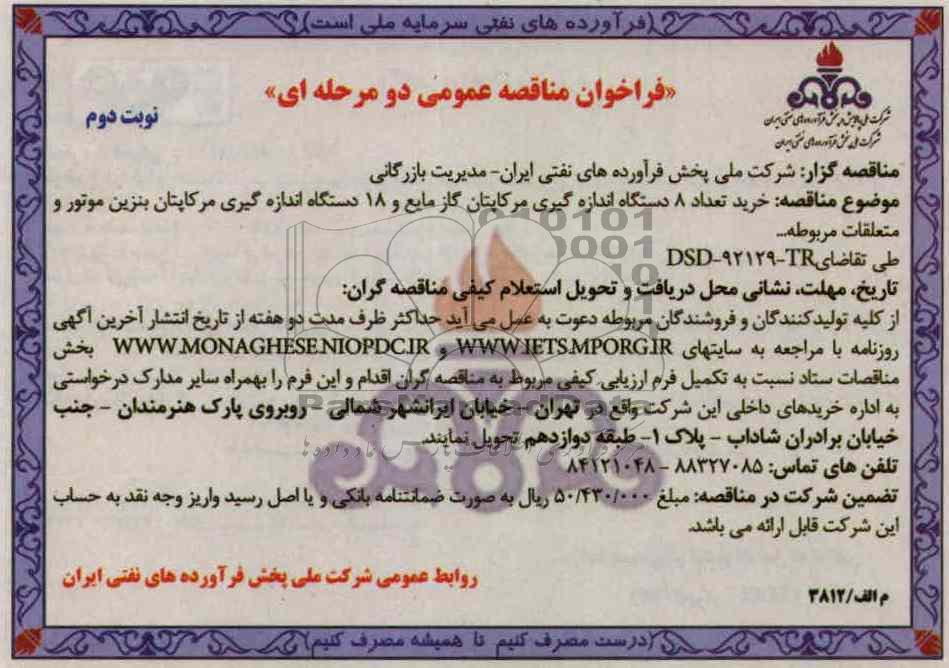 (فرآورده های نفتی سرمایه ملی است)
«فراخوان مناقصه عمومی دو مرحله ای»
نوبت دوم
شرکت ملی پالایش و پخش فرآورده‌های نفتی ایران
شرکت ملی پخش فرآورده‌های نفتی ایران
مناقصه گزار: شرکت ملی پخش فرآورده های نفتی ایران- مدیریت بازرگانی
موضوع مناقصه: خرید تعداد ۸ دستگاه اندازه گیری مرکاپتان گاز مایع و ۱۸ دستگاه اندازه گیری مرکاپتان بنزین موتور و
متعلقات مربوطه...
طی تقاضای DSD-۹۲۱۲۹-TR
تاریخ، مهلت، نشانی محل دریافت و تحویل استعلام کیفی مناقصه گران:
از کلیه تولیدکنندگان و فروشندگان مربوطه دعوت به عمل می آید حداکثر ظرف مدت دو هفته از تاریخ انتشار آخرین آگهی
روزنامه با مراجعه به سایتهای WWW.IETS.MPORG.IR و WWW.MONAGHESE.NIOPDC.IR بخش
مناقصات ستاد نسبت به تکمیل فرم ارزیابی کیفی مربوط به مناقصه گران اقدام و این فرم را بهمراه سایر مدارک درخواستی
به اداره خریدهای داخلی این شرکت واقع در تهران - خیابان ایرانشهر شمالی - روبروی پارک هنرمندان - جنب
خیابان برادران شاداب - پلاک ۱- طبقه دوازدهم تحویل نمایند.
تلفن های تماس: ۸۸۳۲۷۰۸۵ - ۸۴۱۲۱۰۴۸
تضمین شرکت در مناقصه: مبلغ ۵۰/۴۳۰/۰۰۰ ریال به صورت ضمانتنامه بانکی و یا اصل رسید واریز وجه نقد به حساب
این شرکت قابل ارائه می باشد.
روابط عمومی شرکت ملی پخش فرآورده های نفتی ایران
م الف/۳۸۱۲
(درست مصرف کنیم تا همیشه مصرف کنیم)